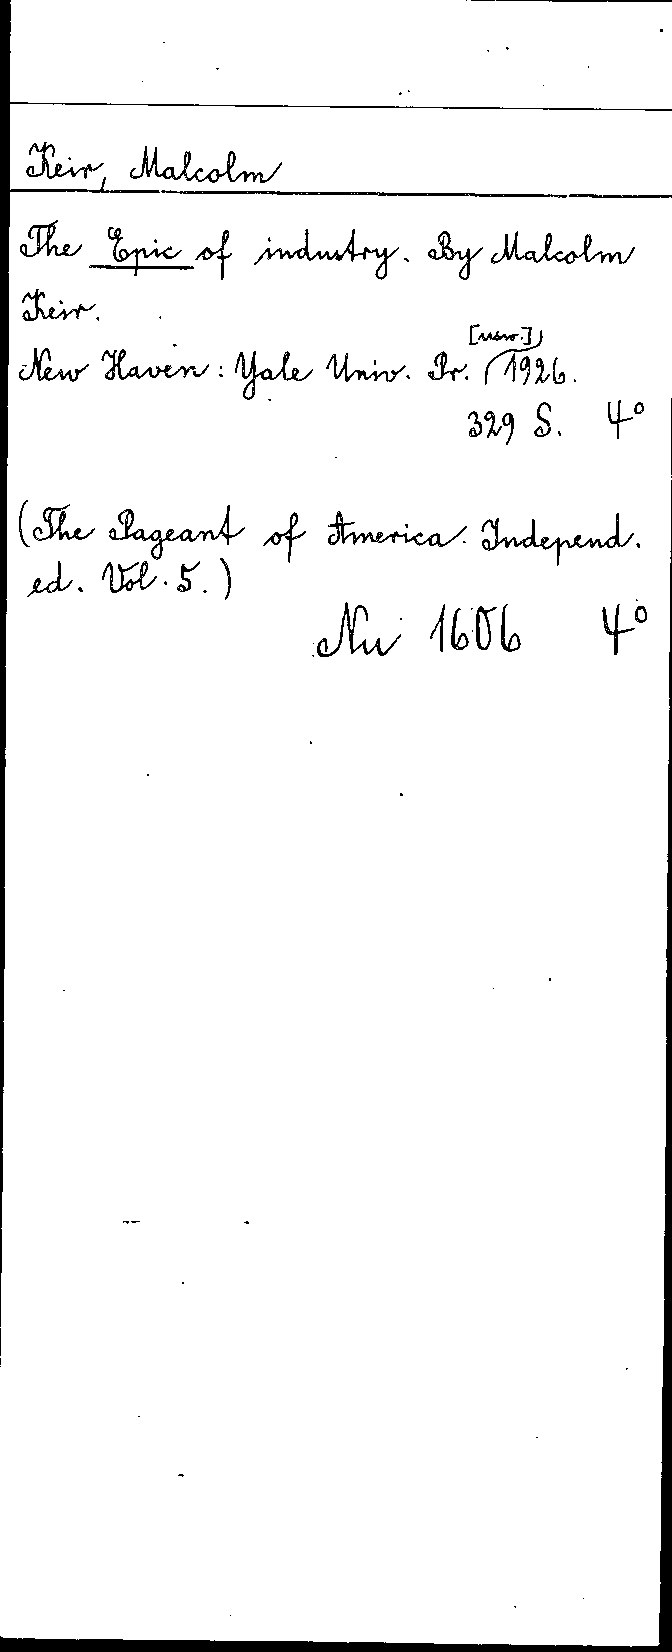 Keir, Malcolm
The Epic of industry. By Malcolm
Keir.
[usw.]
New Haven: Yale Univ. Pr. 1926.
329 S. 4°
(The Pageant of America. Independ.
ed. Vol. 5.)
Nu 1606 4°